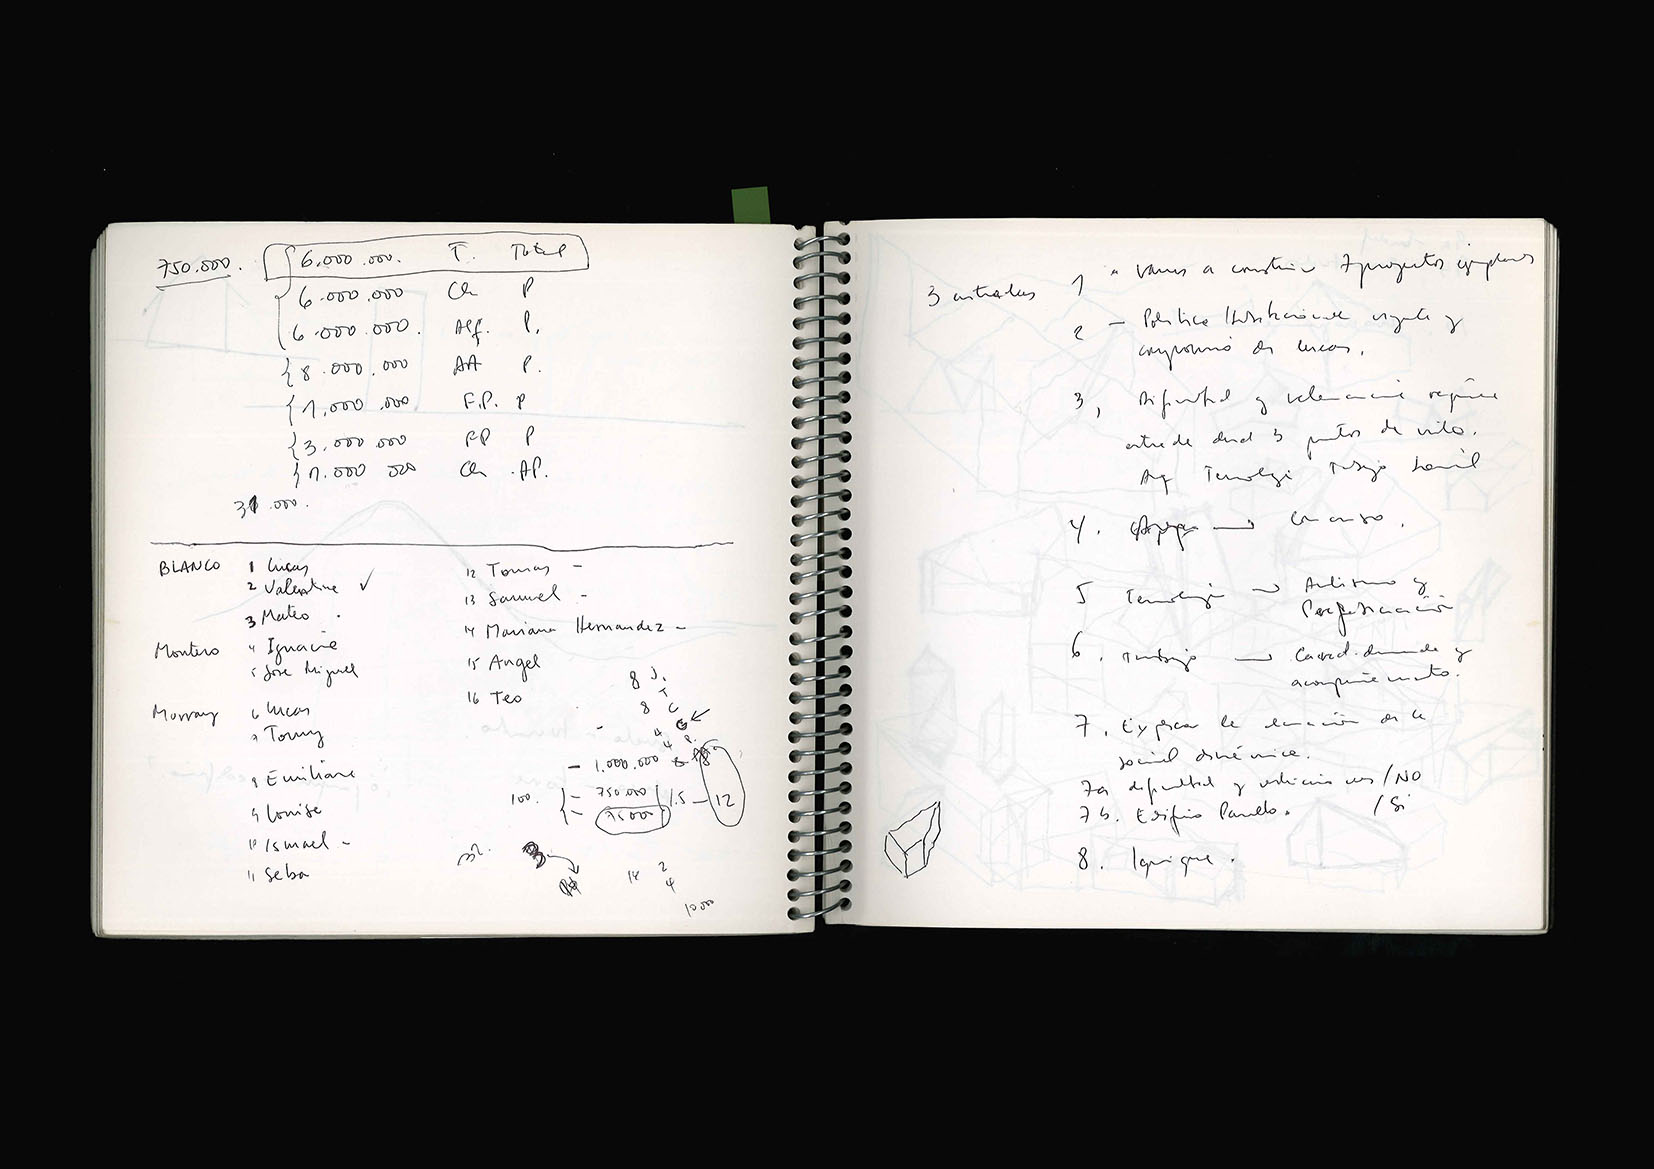 750.000. 6.000.000. T. Total
6.000.000 Ch P
6.000.000. Alf. P.
8.000.000 AA P.
1.000.000 F.P. P
3.000.000 FP P
1.000 000 Ch .AP.
31.000.
BLANCO 1 Lucas
2 Valentine ✓
3 Mateo .
Montero 4 Ignacio
5 José Miguel
Murray 6 Lucas
7 Tomy
8 Emiliano
9 Louise
10 Ismael -
11 Seba
12 Tomas -
13 Samuel -
14 Mariana Hernandez -
15 Angel
16 Teo
8 J.
T
8 C
4 G
4 P.
- 1.000.000
100. - 750.000 1.5 - 12
- 75000
14 2
4
10000
3 entradas 1 " Vamos a construir 7 proyectos ejemplares
2 - Politica Habitacional vigente y
compromiso de lucas.
3, Dificultad y relevancia requiere
desde 3 puntos de vista.
Arq Tecnologia Trabajo Social
4. → Concurso.
5 Tecnologia → Antisismo y
Prefabricación
6. Trabajo → y
acompañamiento.
7. Explicar la ecuación de la
social dinámica.
7a dificultad y /NO
7b. Edificio Paralelo. /Si
8. Iquique.